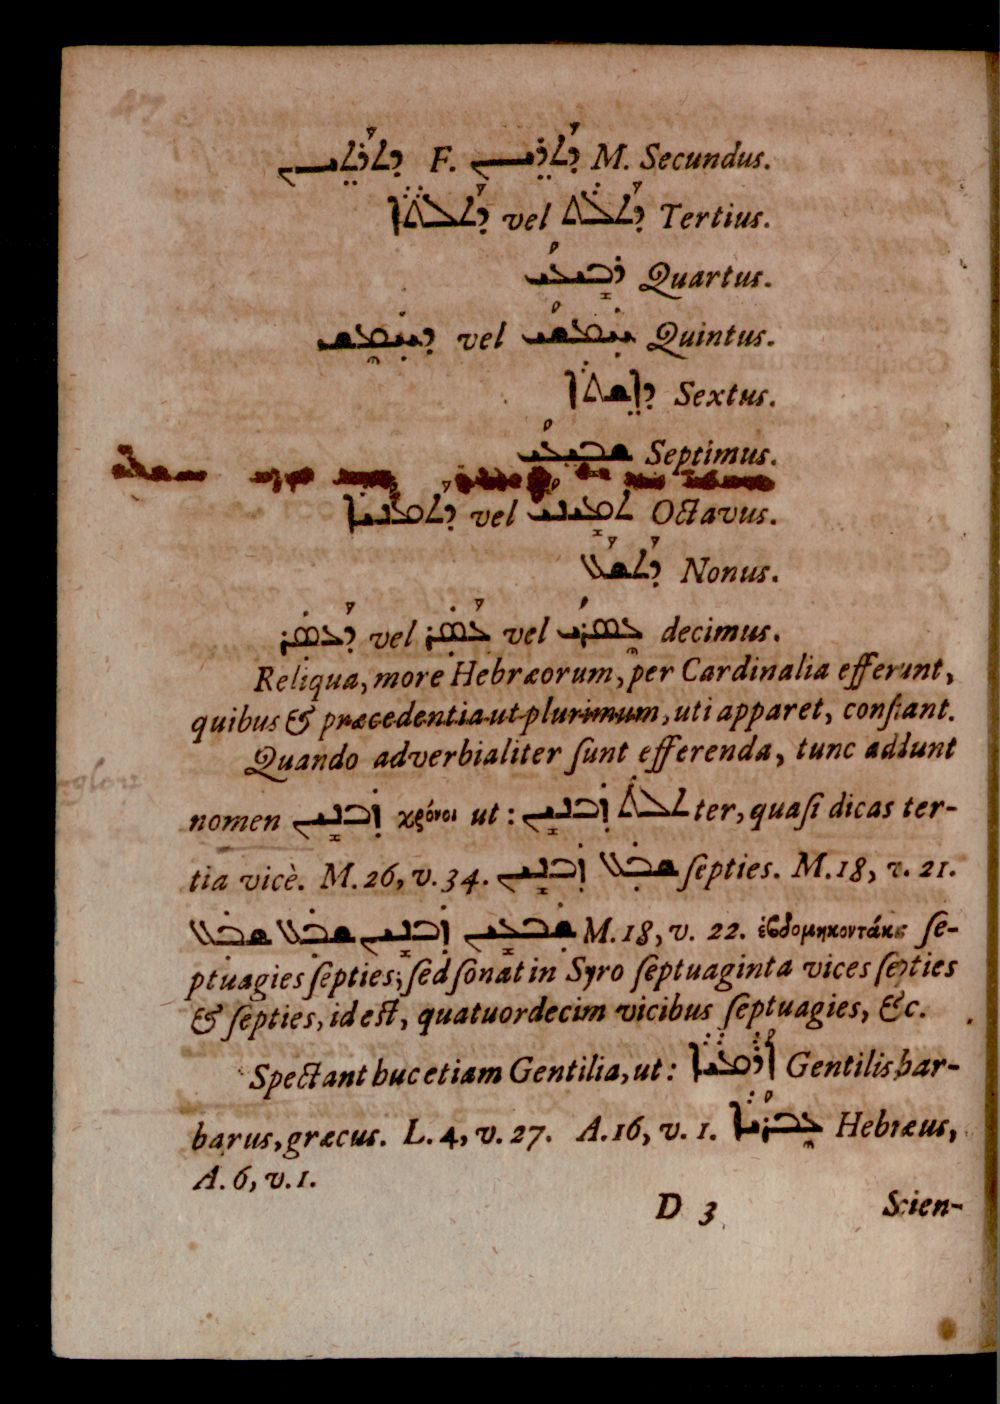 47
ܕܬܪܬܝܢ F. ܕܬܪܝܢ M. Secundus.
ܕܬܠܬܐ vel ܕܬܠܬ Tertius.
Quartus.
vel Quintus.
Sextus.
Septimus.
vel Octavus.
ܕܬܫܥ Nonus.
ܕܥܣܪ vel ܥܣܪ vel decimus.
Reliqua, more Hebræorum, per Cardinalia efferunt,
quibus & præcedentia ut plurimum, uti apparet, conſtant.
Quando adverbialiter ſunt efferenda, tunc addunt
nomen ܙܒܢܝܢ χρόνοι ut: ܙܒܢܝܢ ܬܠܬ ter, quaſi dicas ter-
tia vicè. M. 26, v. 34. ܙܒܢܝܢ ܫܒܥ ſepties. M. 18, v. 21.
ܫܒܥ ܫܒܥ ܙܒܢܝܢ ܫܒܥܝܢ M. 18, v. 22. ἑβδομηκοντάκις ſe-
ptuagies ſepties; ſed ſonat in Syro ſeptuaginta vices ſepties
& ſepties, id eſt, quatuordecim vicibus ſeptuagies, &c.
Spectant huc etiam Gentilia, ut: ܐܪܡܝܐ Gentilis, bar-
barus, græcus. L. 4, v. 27. A. 16, v. 1. ܥܒܪܝܐ Hebræus,
A. 6, v. 1.
D 3 Scien-